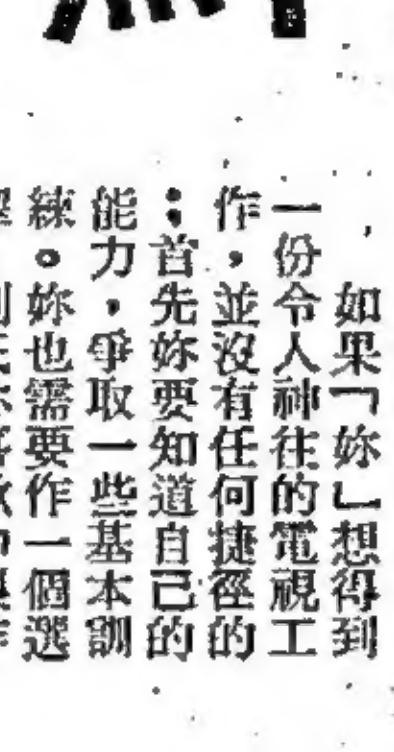 如果「妳」想得到
一份令人神往的電視工
作，並沒有任何捷徑的
；首先妳要知道自己的
能力，爭取一些基本訓
練。妳也需要作一個選